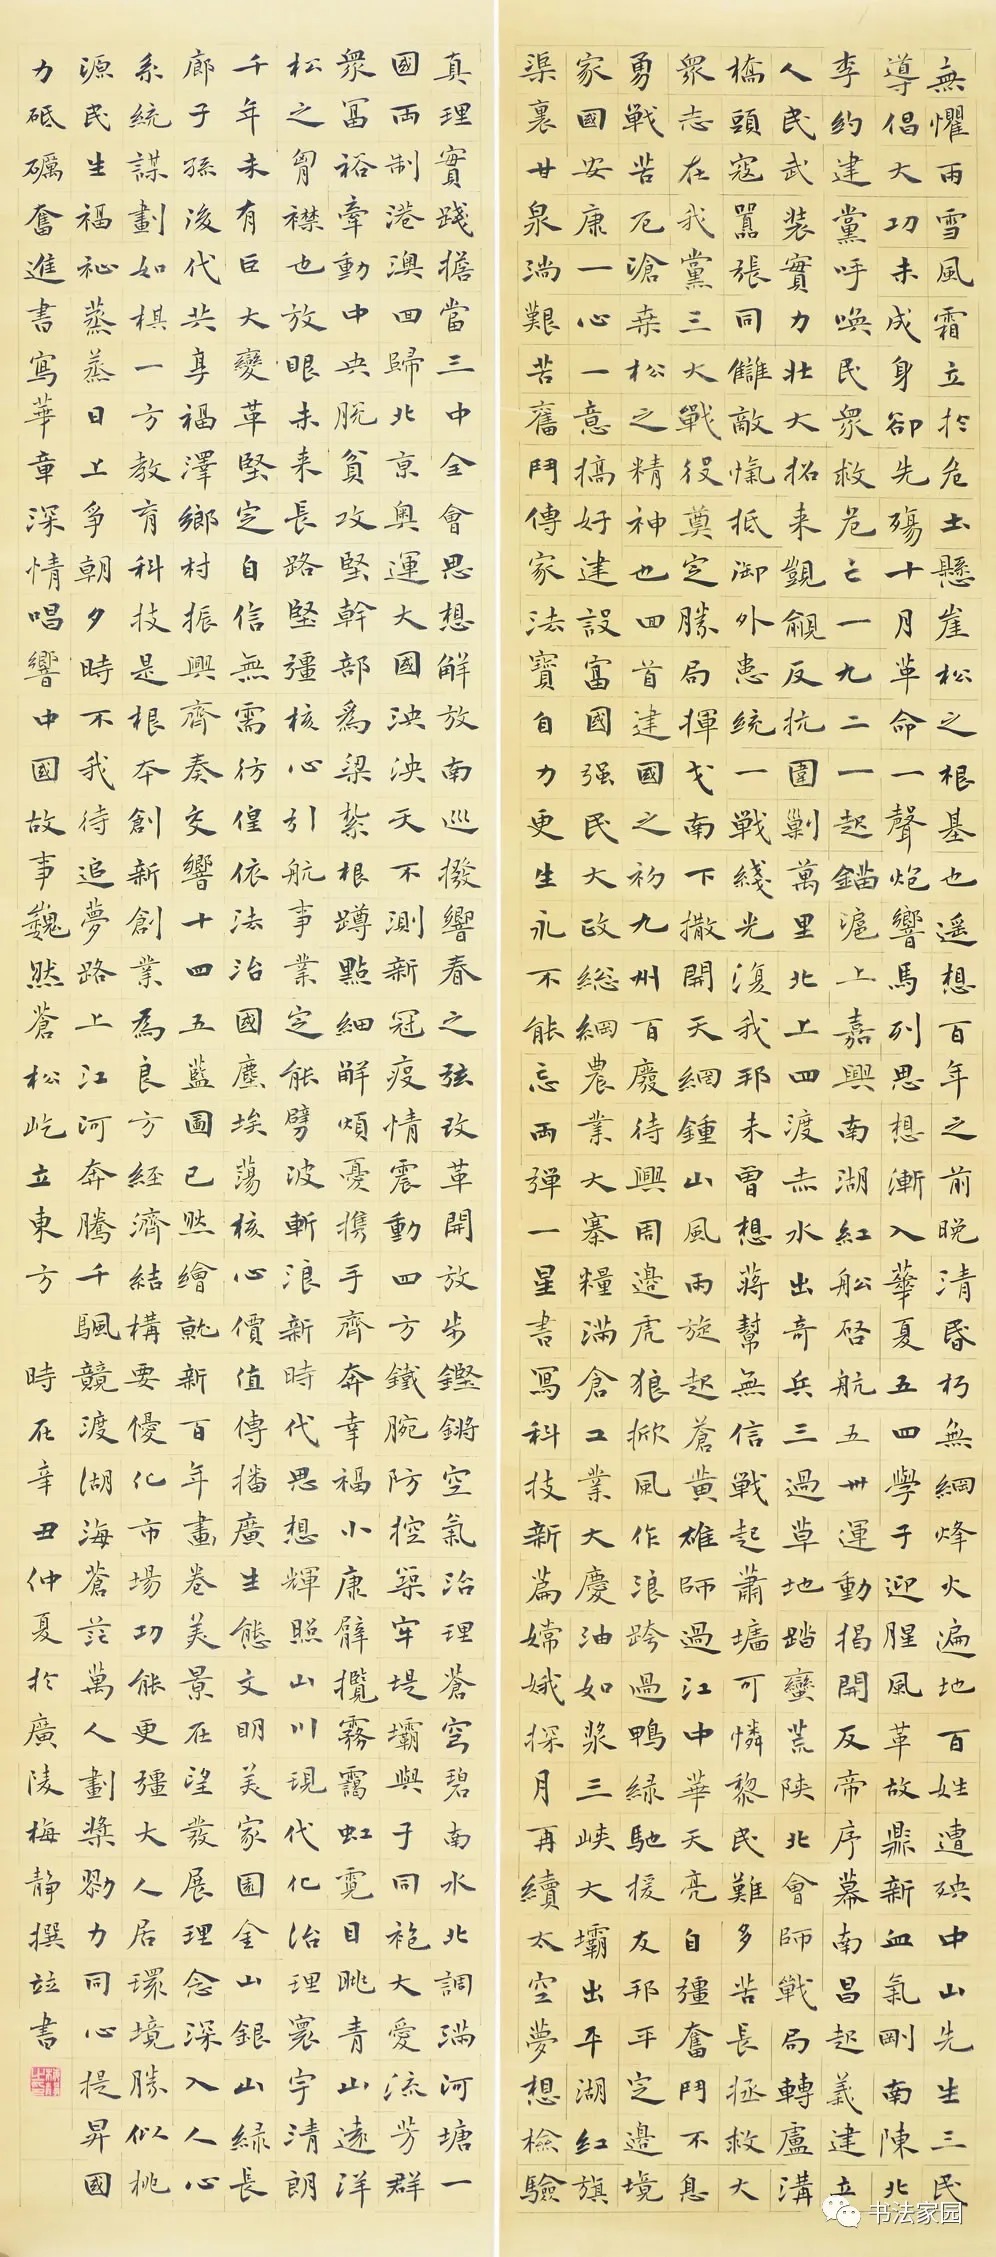 無懼雨雪風霜立於危土懸崖松之根基也遥想百年之前晚清昏朽無綱烽火遍地百姓遭殃中山先生三民
導倡大功未成身卻先殤十月革命一聲炮響馬列思想漸入華夏五四學子迎腥風革故鼎新血氣剛南陳北
李約建黨呼喚民衆救危亡一九二一起錨滬上嘉興南湖紅船啓航五卅運動揭開反帝序幕南昌起義建立
人民武装實力壯大招来覬覦反抗圍剿萬里北上四渡赤水出奇兵三過草地踏蠻荒陝北會師戰局轉盧溝
橋頭寇囂張同讎敵愾抵御外患統一戰綫光復我邦未曾想蔣幫無信戰起蕭墻可憐黎民難多苦長拯救大
衆志在我黨三大戰役奠定勝局揮戈南下撒開天網鍾山風雨旋起蒼黄雄師過江中華天亮自彊奮鬥不息
勇戰苦厄滄桑松之精神也四首建國之初九州百廢待興周邊虎狼掀風作浪跨過鴨緑馳援友邦平定邊境
家國安康一心一意搞好建設富國强民大政総綱農業大寨糧滿倉工業大慶油如漿三峽大壩出平湖紅旗
渠裏甘泉淌艱苦奮鬥傳家法寶自力更生永不能忘兩弹一星書寫科技新篇嫦娥探月再續太空夢想檢驗
真理實踐擔當三中全會思想解放南巡撥響春之弦改革開放步鏗鏘空氣治理蒼穹碧南水北調滿河塘一
國兩制港澳回歸北京奧運大國泱泱天不測新冠疫情震動四方鐵腕防控築牢堤壩與子同袍大愛流芳群
衆富裕牽動中央脱貧攻堅幹部為梁紮根蹲點細解煩憂携手齊奔幸福小康臂攬霧靄虹霓目眺青山遠洋
松之胸襟也放眼未来長路堅彊核心引航事業定能劈波斬浪新時代思想輝照山川現代化治理寰宇清朗
千年未有巨大變革堅定自信無需彷徨依法治國塵埃蕩核心價值傳播廣生態文明美家園金山銀山緑長
廊子孫後代共享福澤鄉村振興齊奏交響十四五藍圖已然繪就新百年畫卷美景在望發展理念深入人心
系統謀劃如棋一方教育科技是根本創新創業為良方経濟結構要優化市場功能更彊大人居環境勝似桃
源民生福祉蒸蒸日上争朝夕時不我待追夢路上江河奔騰千颿競渡湖海蒼茫萬人劃槳勠力同心提昇國
力砥礪奮進書寫華章深情唱響中國故事巍然蒼松屹立東方 時在辛丑仲夏於廣陵梅静撰竝書
书法家园